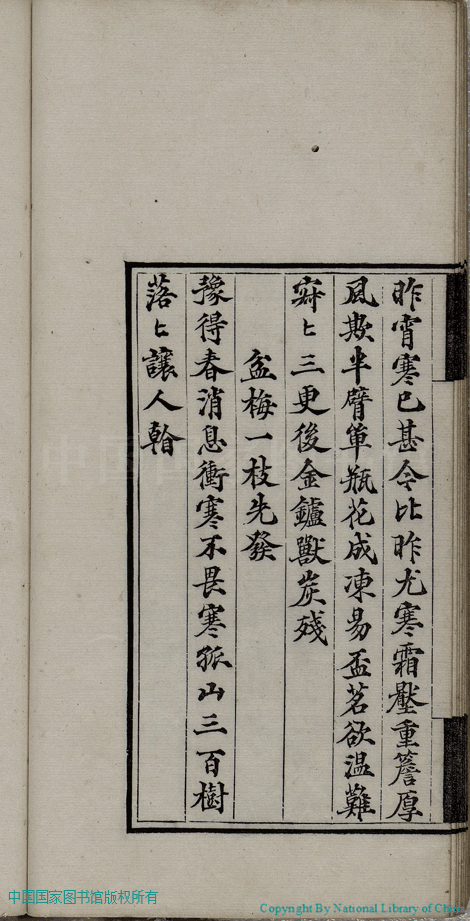 昨宵寒已甚今比昨尤寒霜壓重簷厚
風欺半臂單瓶花成凍易盃茗欲温難
寂〻三更後金鑪獸炭殘
盆梅一枝先發
豫得春消息衝寒不畏寒孤山三百樹
落〻讓人翰
中国国家图书馆版权所有
Copyright By National Library of China